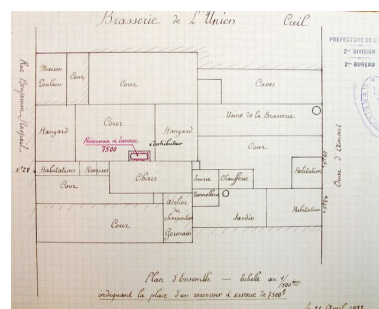 Brasserie de L'Union Creil
PREFECTURE DE L'
2me DIVISION
2me BUREAU
Rue Benjamin Raspail
Maison
Cour
Cour
Caves
Usine de la Brasserie
Hangard
Cour
Hangard
Réservoir à essence
7500
distributeur
Cour
N° 28
Habitation
Remise
Chais
Chaufferie
Habitation
Cour
Tonnellerie
Atelier
de
charpentier
Germain
Jardin
Habitation
Cour
Plan d'Ensemble — Echelle au 1/500
indiquant la place d'un réservoir à essence de 7500l
Avril